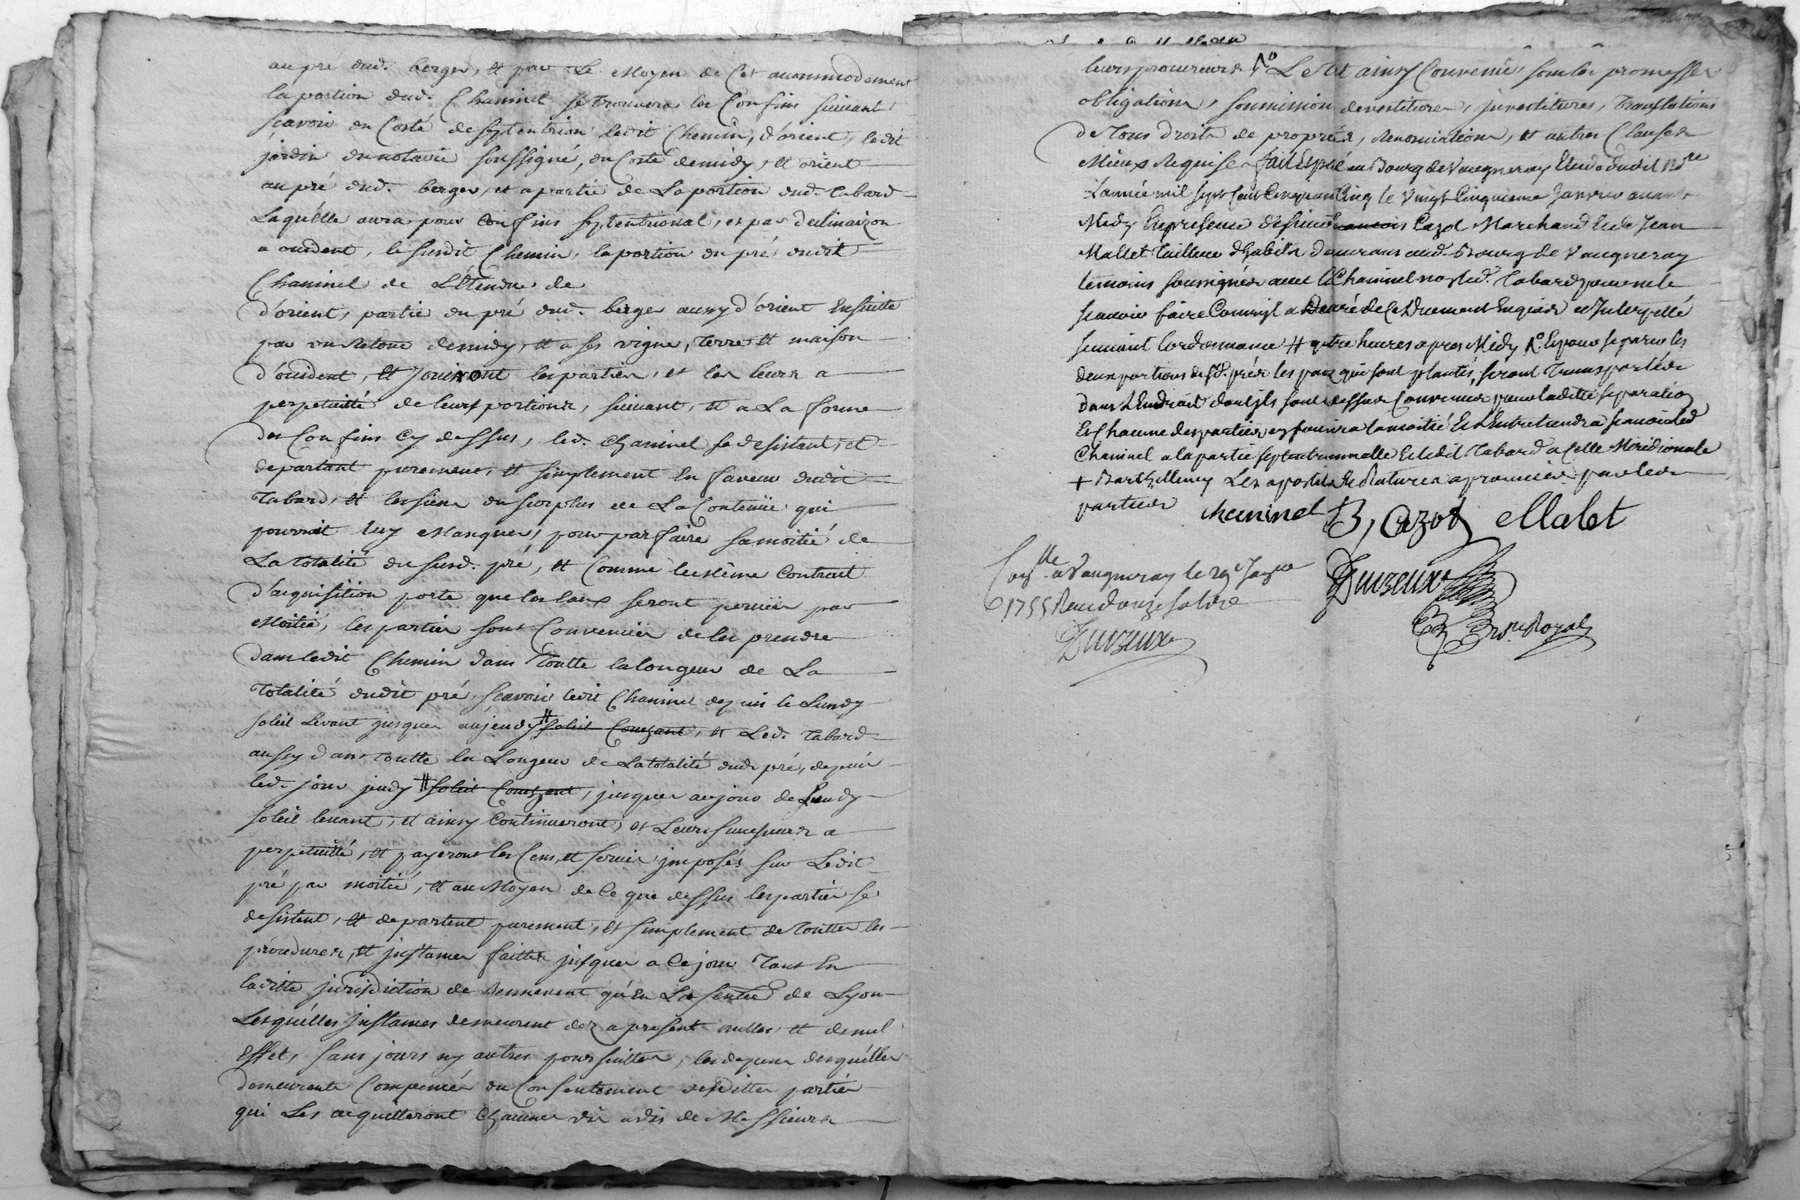 au pré dud. berger, et par le moyen de cet accommodement
la portion dud. Chaninel se trouvera les confins suivant
scavoir du Costé de septentrion ledit Chemin, d'orient, ledit
jardin du notaire soussigné, du Costé de midy, et orient
au pré dud. berger, et a partie de La portion dud. Tabard
Laquelle aura pour Confins septentrional, et par declinaizon
a occident, le susdit Chemin, la portion du pré dudit
Chaninel de L'Etendue de
d'orient, partie du pré dud. berger aussy d'orient Ensuite
par un Retour de midy, et a ses vigne, terre et maison
d'occident, et Jouiront les parties, et les leurs a
perpetuitté de leurs portions, suivant, et a La forme
des Confins cy dessus, led. Chaninel se desistant, et
departant purement, et simplement En faveur dudit
Tabard, et les siens du surplus de La Contenüe qui
pourroit luy Manquer, pour parfaire sa moitié de
La totalité du susd. pré, et Comme le même Contrait
d'acquisition porte que les eaux seront perçües par
Moitié, les parties sont Convenües de les prendre
dans ledit Chemin dans toutte la longeur de La
Totalité dudit pré, scavoir ledit Chaninel depuis le Lundy
soleil Levant jusques au jeudy # soleil Couchant, et Led. Tabard
aussy dans toutte la Longeur de La totalité dud. pré, depuis
led. jour jeudy # soleil Couchant, jusques au jour de Lundy
soleil levant, et ainsy Continüeront, et Leurs successeurs a
perpetuitté, et payeront les Cens, et servis jmposés sur Ledit
pré par moitié, et au Moyen de Ce que dessus les parties se
desistent, et departent purement, et simplement de touttes les
procedures, et jnstances faittes jusques a Ce jour Tant En
laditte jurisdiction de qu'En La de Lyon
Lesquelles Jnstances demeurent dez a present nulles et de nul
Effet, sans jours ny autres poursuittes, les depens desquelles
demeurants Compensés du Consentement desdittes parties
qui Les acquitteront Chacunes vis a vis de Messieurs
leurs procureurs Le tout ainsy Convenu sous les promesses
obligations, soumissions devestitures, jnvestitures, Translations
de Tous droits de proprietés, Renonciations, et autres Clauses
Mieux Requises fait Et passé au Bourg de Vaugneray Etude dudit Nre
L'année mil sept Cent Cinquante Cinq le vingt Cinquieme Janvier avant
Midy En presence de sieur Cazot Marchand et de Jean
Mallet Tailleur d'habits demeurans aud. Bourg de Vaugneray
temoins soussignés avec le Chaninel non led. Tabard pour ne le
scavoir faire Comm'il a Declaré de Ce Duement Enquis et Interpellé
suivant l'ordonnance # quatre heures apres Midy Et pour separer les
deux portions desd. prés les paux qui sont plantés, seront Transportés
dans L'Endroit dont Ils sont dessus Convenus pour laditte separation
Et Chacune des parties en fournira la moitié Et L'Entretiendra scavoir led
Chaninel a la partie septentrionnalle Et ledit Tabard a Celle Meridionale
+ Barthellemy Les apostilles Et Ratures approuvées par les
parties Chaninel B, Cazot Mallet
Duvzeux
Conlle a Vaugneray le 29e Janvr
1755 Reçu douze sols
Duvzeux
Nre Royal